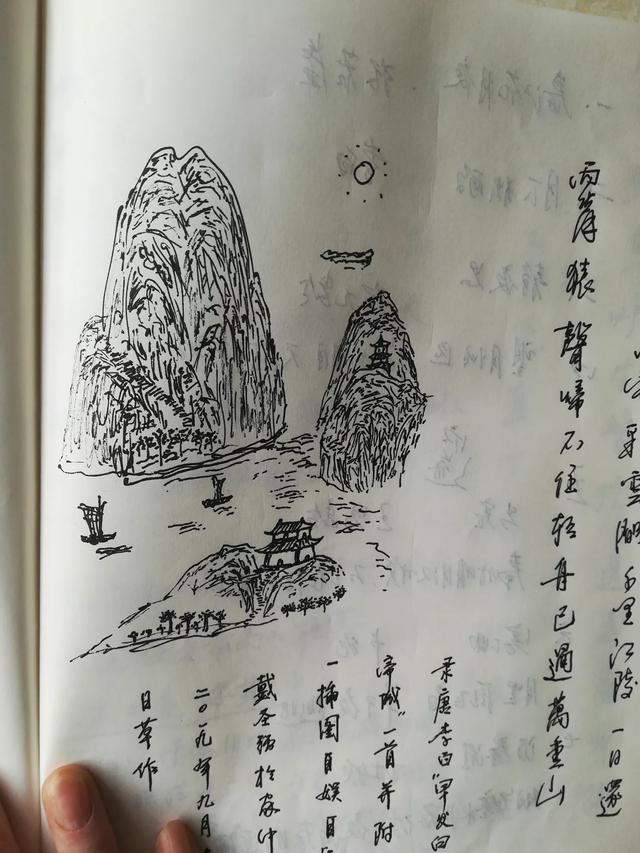 彩雲間千里江陵一日還
两岸猿聲啼不住轻舟已過萬重山
录唐李白"早发白
帝城"一首并附
一插图自娱自
戴圣於家中
二〇一九年九月
日草作